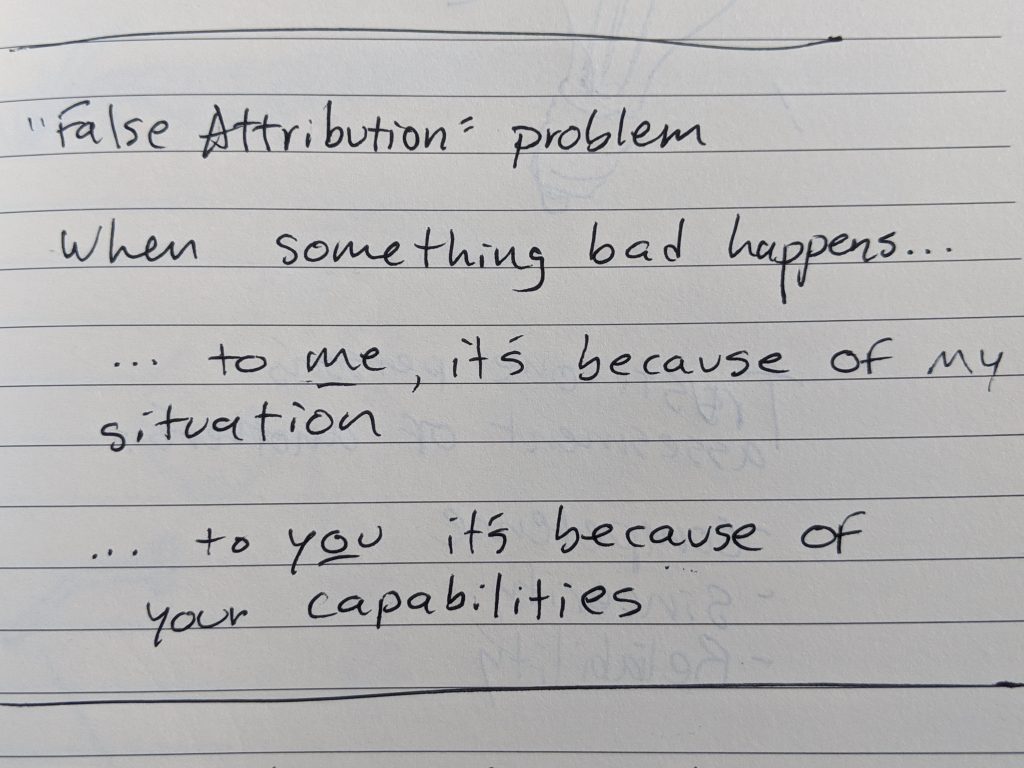 "False Attribution" problem
When something bad happens...
... to me, it's because of my
situation
... to you it's because of
your capabilities